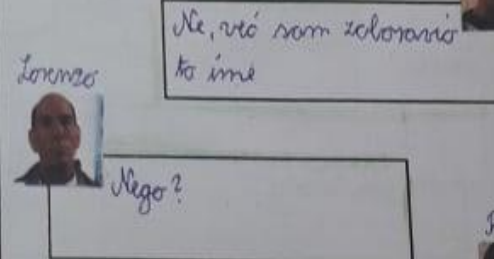 Ne, već sam zaboravio
to ime
Lorenzo
Nego?